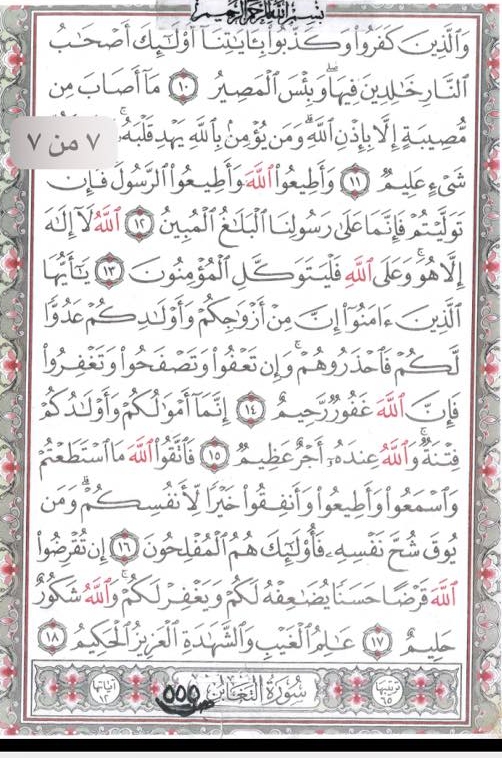 بِسْمِ اللَّهِ الرَّحْمَٰنِ الرَّحِيمِ
وَٱلَّذِينَ كَفَرُوا۟ وَكَذَّبُوا۟ بِـَٔايَٰتِنَآ أُو۟لَٰٓئِكَ أَصْحَٰبُ
ٱلنَّارِ خَٰلِدِينَ فِيهَا ۖ وَبِئْسَ ٱلْمَصِيرُ ١٠ مَآ أَصَابَ مِن
مُّصِيبَةٍ إِلَّا بِإِذْنِ ٱللَّهِ ۗ وَمَن يُؤْمِنۢ بِٱللَّهِ يَهْدِ قَلْبَهُۥ ۚ
٧ من ٧
شَىْءٍ عَلِيمٌ ١١ وَأَطِيعُوا۟ ٱللَّهَ وَأَطِيعُوا۟ ٱلرَّسُولَ ۚ فَإِن
تَوَلَّيْتُمْ فَإِنَّمَا عَلَىٰ رَسُولِنَا ٱلْبَلَٰغُ ٱلْمُبِينُ ١٢ ٱللَّهُ لَآ إِلَٰهَ
إِلَّا هُوَ ۚ وَعَلَى ٱللَّهِ فَلْيَتَوَكَّلِ ٱلْمُؤْمِنُونَ ١٣ يَٰٓأَيُّهَا
ٱلَّذِينَ ءَامَنُوٓا۟ إِنَّ مِنْ أَزْوَٰجِكُمْ وَأَوْلَٰدِكُمْ عَدُوًّا
لَّكُمْ فَٱحْذَرُوهُمْ ۚ وَإِن تَعْفُوا۟ وَتَصْفَحُوا۟ وَتَغْفِرُوا۟
فَإِنَّ ٱللَّهَ غَفُورٌ رَّحِيمٌ ١٤ إِنَّمَآ أَمْوَٰلُكُمْ وَأَوْلَٰدُكُمْ
فِتْنَةٌ ۚ وَٱللَّهُ عِندَهُۥٓ أَجْرٌ عَظِيمٌ ١٥ فَٱتَّقُوا۟ ٱللَّهَ مَا ٱسْتَطَعْتُمْ
وَٱسْمَعُوا۟ وَأَطِيعُوا۟ وَأَنفِقُوا۟ خَيْرًا لِّأَنفُسِكُمْ ۗ وَمَن
يُوقَ شُحَّ نَفْسِهِۦ فَأُو۟لَٰٓئِكَ هُمُ ٱلْمُفْلِحُونَ ١٦ إِن تُقْرِضُوا۟
ٱللَّهَ قَرْضًا حَسَنًا يُضَٰعِفْهُ لَكُمْ وَيَغْفِرْ لَكُمْ ۚ وَٱللَّهُ شَكُورٌ
حَلِيمٌ ١٧ عَٰلِمُ ٱلْغَيْبِ وَٱلشَّهَٰدَةِ ٱلْعَزِيزُ ٱلْحَكِيمُ ١٨
ترتيبها ٦٥ سُورَةُ التَّغَابُن ٥٥٥ آياتها ١٢